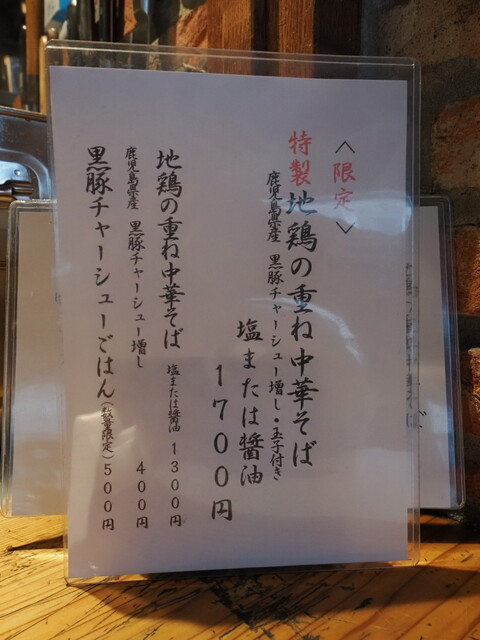 〈限定〉
特製地鶏の重ね中華そば
鹿児島県産 黒豚チャーシュー増し・玉子付き
塩または醤油
1700円
地鶏の重ね中華そば 塩または醤油 1300円
鹿児島県産 黒豚チャーシュー増し 400円
黒豚チャーシューごはん(数量限定)500円